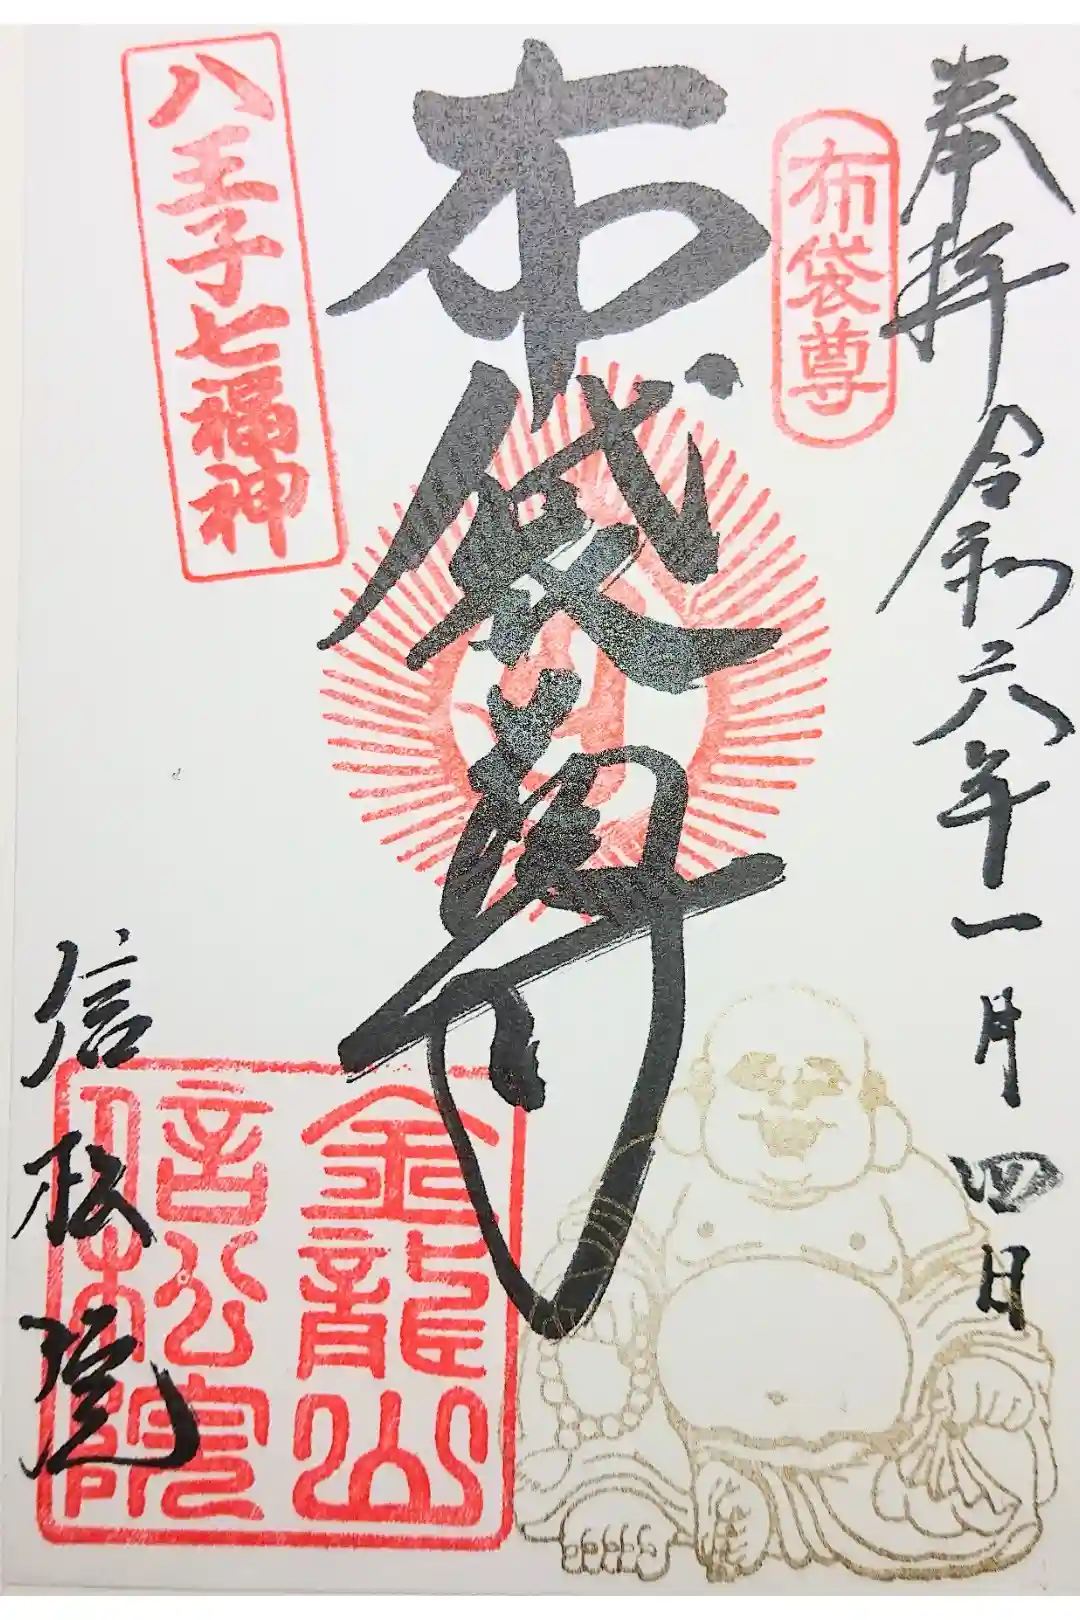 奉拝 令和六年一月四日
布袋尊
布袋尊
八王子七福神
金龍山
信松院
信松院